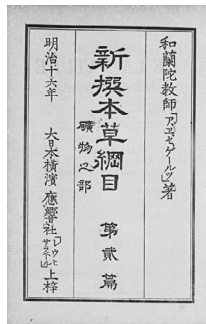 和蘭陀教師「アヱヂセゲールツ」著
新撰本草綱目
礦物之部
第貳篇
明治十六年
大日本橫濱 應響會社「レウヒサラベール」上梓